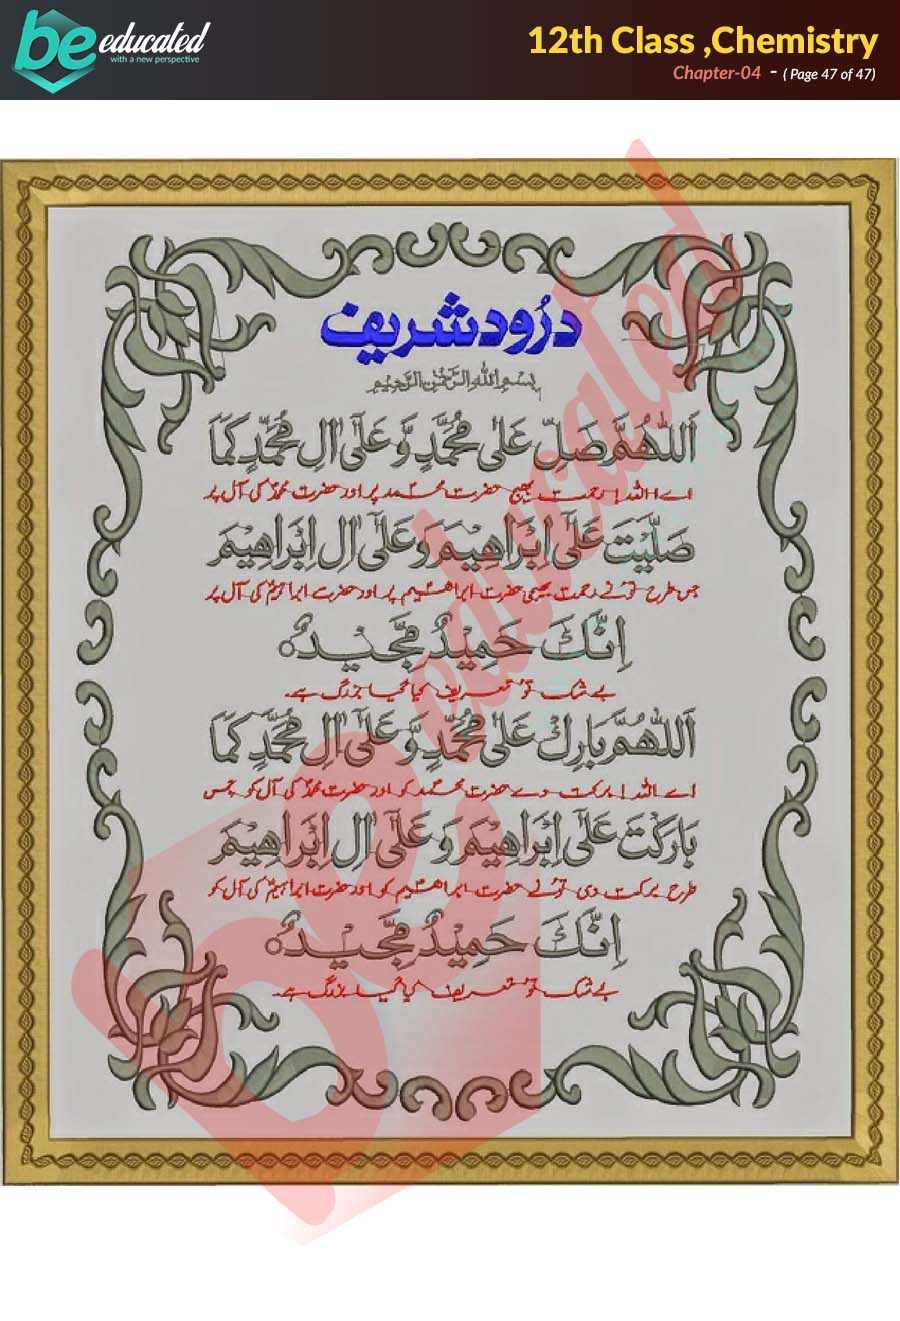 be educated
with a new perspective
12th Class ,Chemistry
Chapter-04 - ( Page 47 of 47)
درُود شریف
بِسْمِ اللهِ الرَّحْمٰنِ الرَّحِيْمِ
اَللّٰهُمَّ صَلِّ عَلٰى مُحَمَّدٍ وَّ عَلٰٓى اٰلِ مُحَمَّدٍ كَمَا
اے اللہ! رحمت بھیج حضرت محمّد پر اور حضرت محمدؐ کی آل پر
صَلَّيْتَ عَلٰٓى اِبْرَاهِيْمَ وَ عَلٰٓى اٰلِ اِبْرَاهِيْمَ
جس طرح تو نے رحمت بھیجی حضرت ابراھیم پر اور حضرت ابراہیمؑ کی آل پر
اِنَّكَ حَمِيْدٌ مَّجِيْدٌ
بے شک تو تعریف کیا گیا بزرگ ہے۔
اَللّٰهُمَّ بَارِكْ عَلٰى مُحَمَّدٍ وَّ عَلٰٓى اٰلِ مُحَمَّدٍ كَمَا
اے اللہ! برکت دے حضرت محمّد کو اور حضرت محمدؐ کی آل کو جس
بَارَكْتَ عَلٰٓى اِبْرَاهِيْمَ وَ عَلٰٓى اٰلِ اِبْرَاهِيْمَ
طرح برکت دی تو نے حضرت ابراھیم کو اور حضرت ابراہیمؑ کی آل کو
اِنَّكَ حَمِيْدٌ مَّجِيْدٌ
بے شک تو تعریف کیا گیا بزرگ ہے۔
be educated